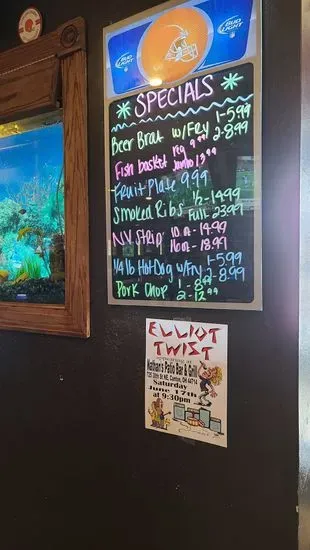 BUD LIGHT
BUD LIGHT
SPECIALS
Beer Brat w/Fry 1-5.99
2-8.99
Fish basket reg 9.99
Jumbo 13.99
Fruit Plate 9.99
Smoked Ribs 1/2-14.99
Full 23.99
NY Strip 10oz-14.99
16oz-18.99
1/4 lb Hot Dog w/Fry 1-5.99
2-8.99
Pork Chop 1-8.99
2-12.99
ELLIOT
TWIST
Nathan's Patio Bar & Grill
725 30th St NE, Canton, OH 44714
Saturday
June 17th
at 9:30pm